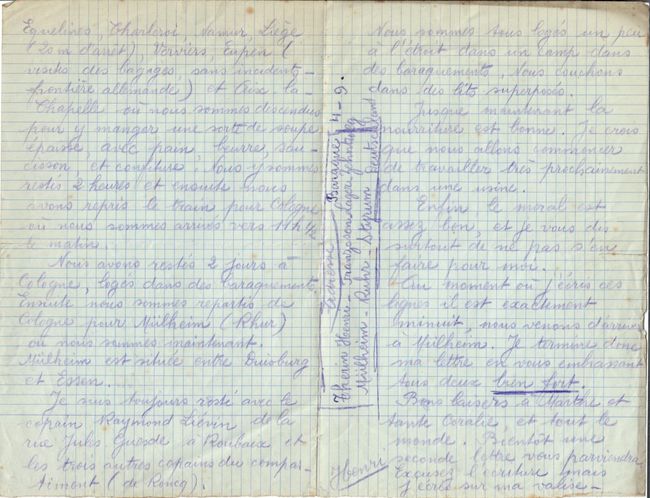 Equelines, Charleroi, Namur, Liège
(20m d'arrêt), Verviers, Eupen (
visites des bagages, sans incidents -
frontière allemande) et Aix-la-
Chapelle où nous sommes descendus
pour y manger une sorte de soupe
épaisse, avec pain, beurre, sau-
cisson et confiture. Nous y sommes
restés 2 heures et ensuite nous
avons repris le train pour Cologne
où nous sommes arrivés vers 11h 1/2
le matin.
Nous avons restés 2 jours à
Cologne, logés dans des baraquements.
Ensuite nous sommes repartis de
Cologne pour Mülheim (Rhur)
où nous sommes maintenant.
Mülheim est située entre Duisburg
et Essen.
Je suis toujours resté avec le
copain Raymond Liévin de la
rue Jules Guesde à Roubaix et
les trois autres copains du compar-
timent (de Roncq).
Adresse - Baraque 4-9.
Therin Henri - Franzosenlager
Mülheim - Ruhr - Styrum Deutschland
Nous sommes tous logés un peu
à l'étroit dans un camp dans
des baraquements. Nous couchons
dans des lits superposés.
Jusque maintenant la
nourriture est bonne. Je crois
que nous allons commencer
de travailler très prochainement
dans une usine.
Enfin, le moral est
assez bon, et je vous dis
surtout de ne pas s'en
faire pour moi.
Au moment où j'écris ces
lignes il est exactement
minuit, nous venons d'arriver
à Mülheim. Je termine donc
ma lettre en vous embrassant
tous deux bien fort.
Bons baisers à Marthe et
tante Coralie, et tout le
monde. Bientôt une
seconde lettre vous parviendra.
Excusez l'écriture mais
j'écris sur ma valise -
Henri